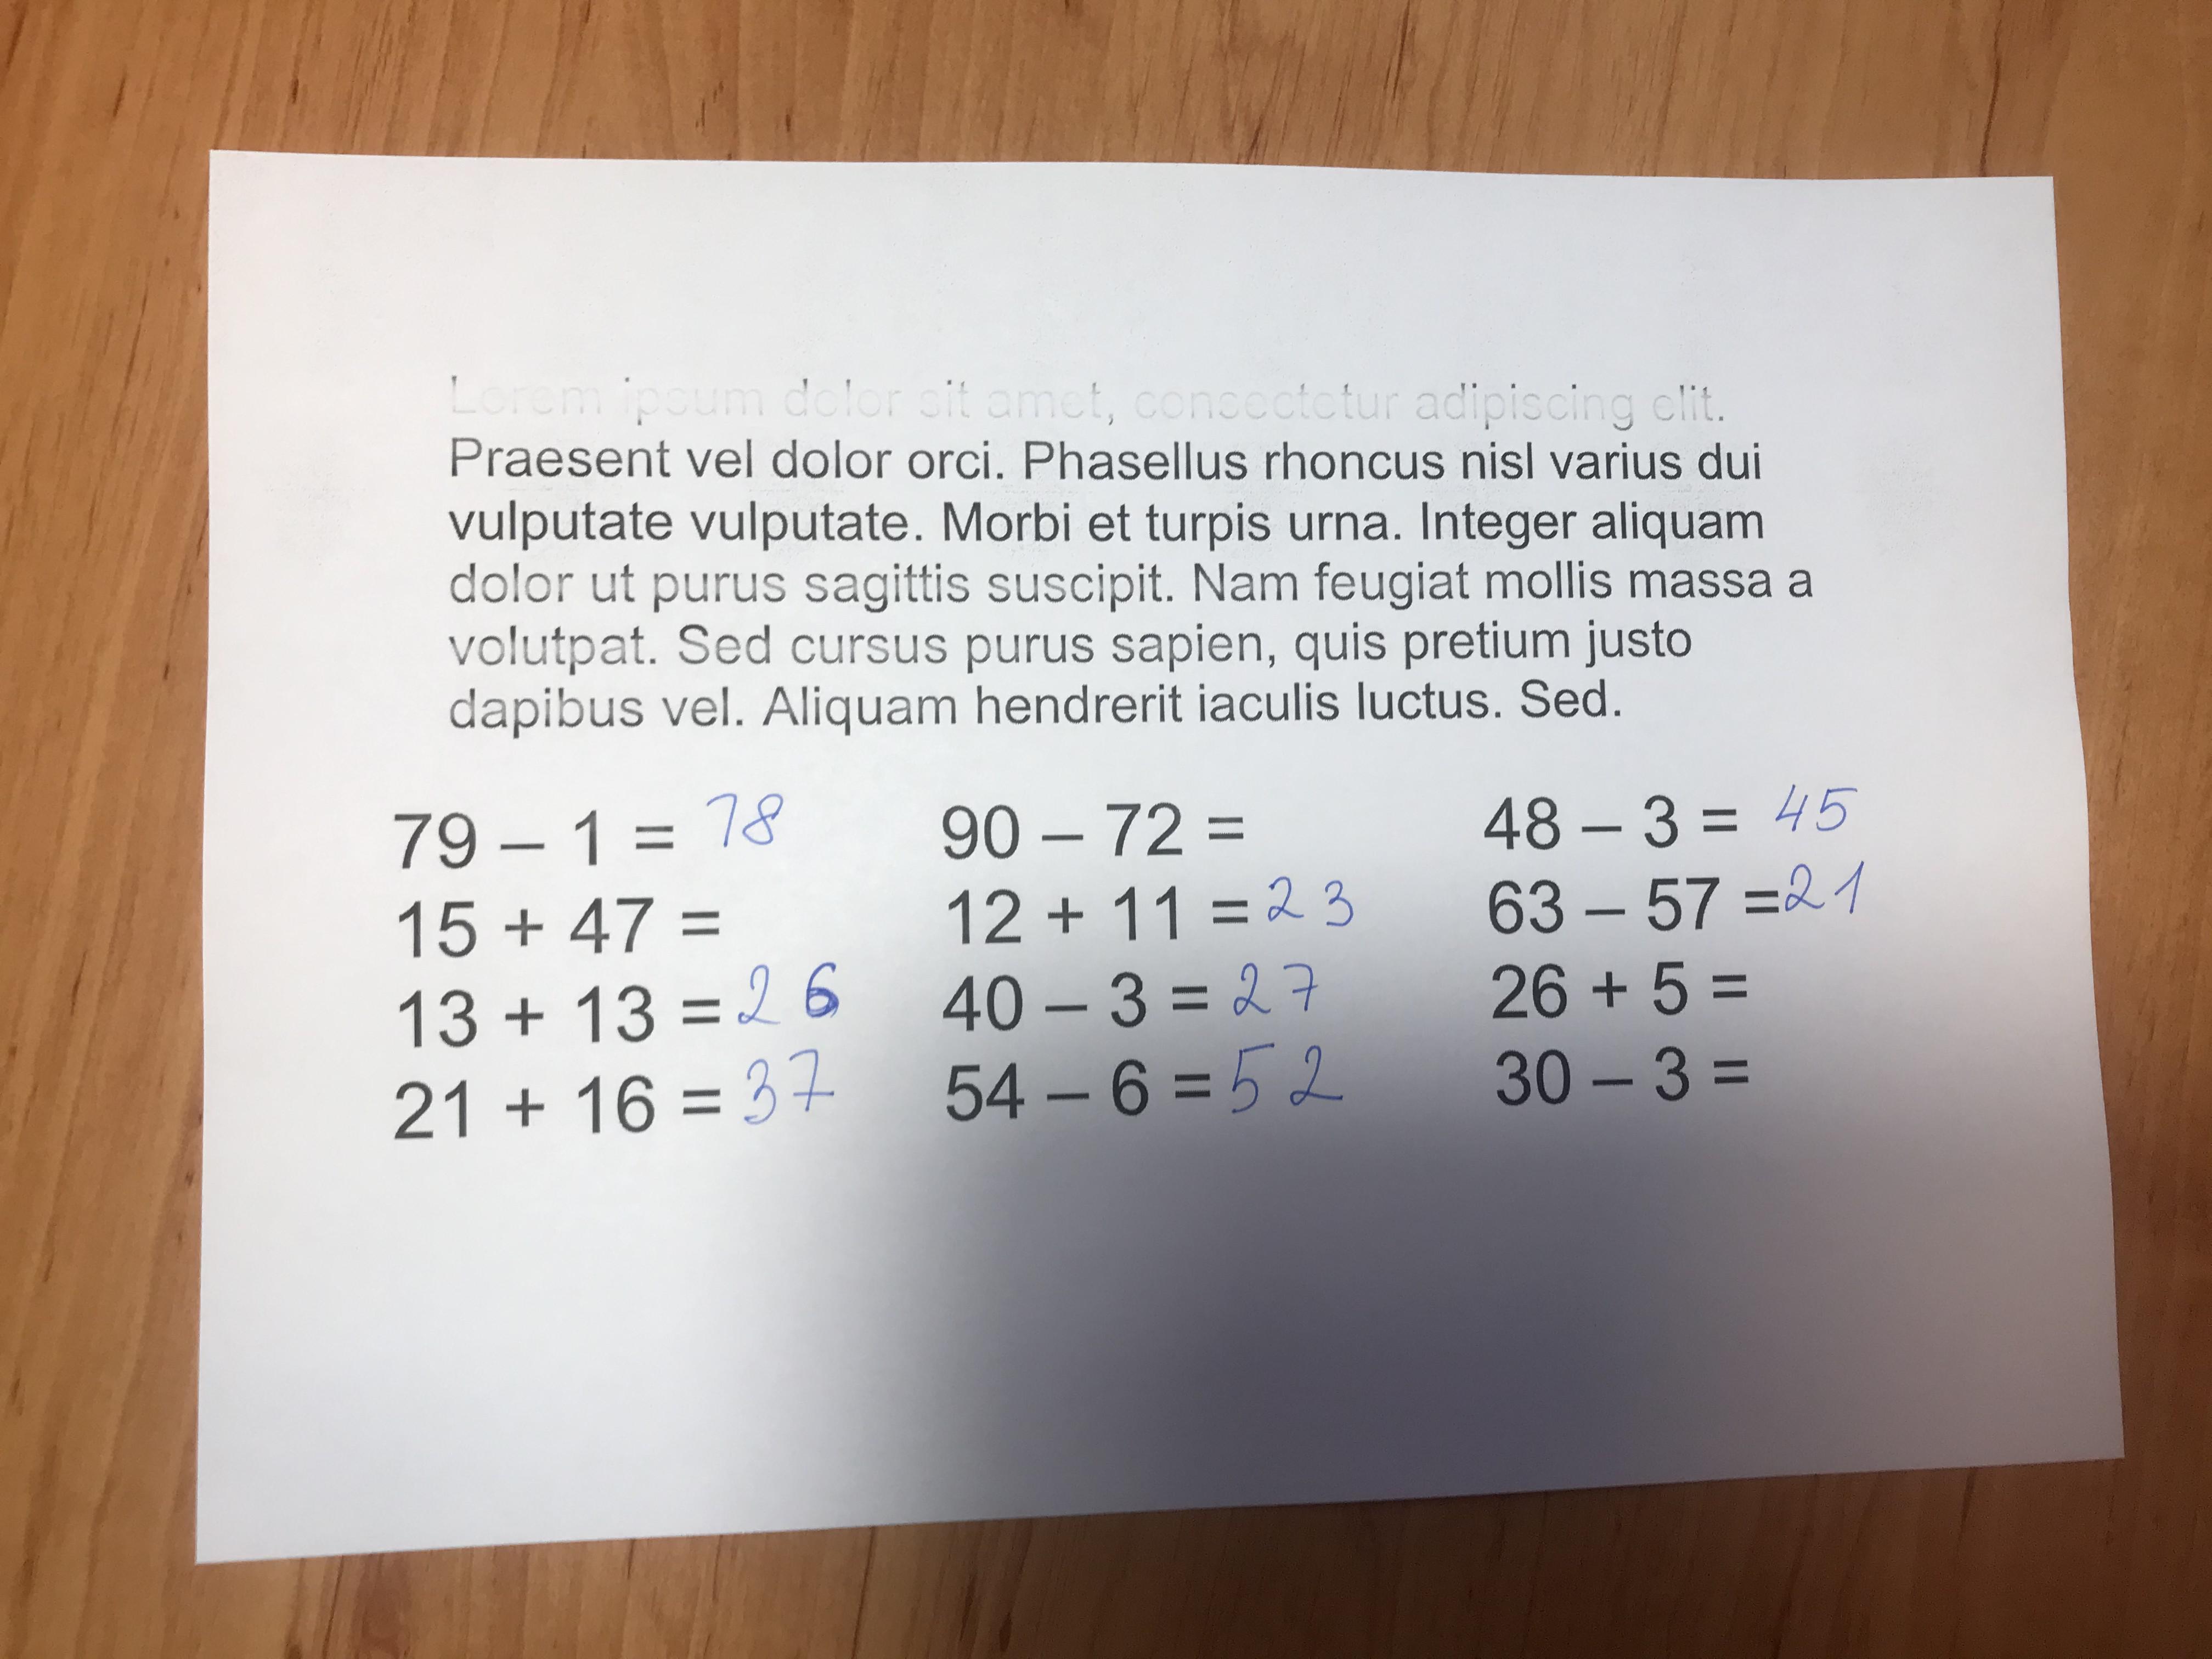 Lorem ipsum dolor sit amet, consectetur adipiscing elit.
Praesent vel dolor orci. Phasellus rhoncus nisl varius dui
vulputate vulputate. Morbi et turpis urna. Integer aliquam
dolor ut purus sagittis suscipit. Nam feugiat mollis massa a
volutpat. Sed cursus purus sapien, quis pretium justo
dapibus vel. Aliquam hendrerit iaculis luctus. Sed.
79 – 1 = 78
15 + 47 =
13 + 13 = 26
21 + 16 = 37
90 – 72 =
12 + 11 = 23
40 – 3 = 27
54 – 6 = 52
48 – 3 = 45
63 – 57 = 21
26 + 5 =
30 – 3 =